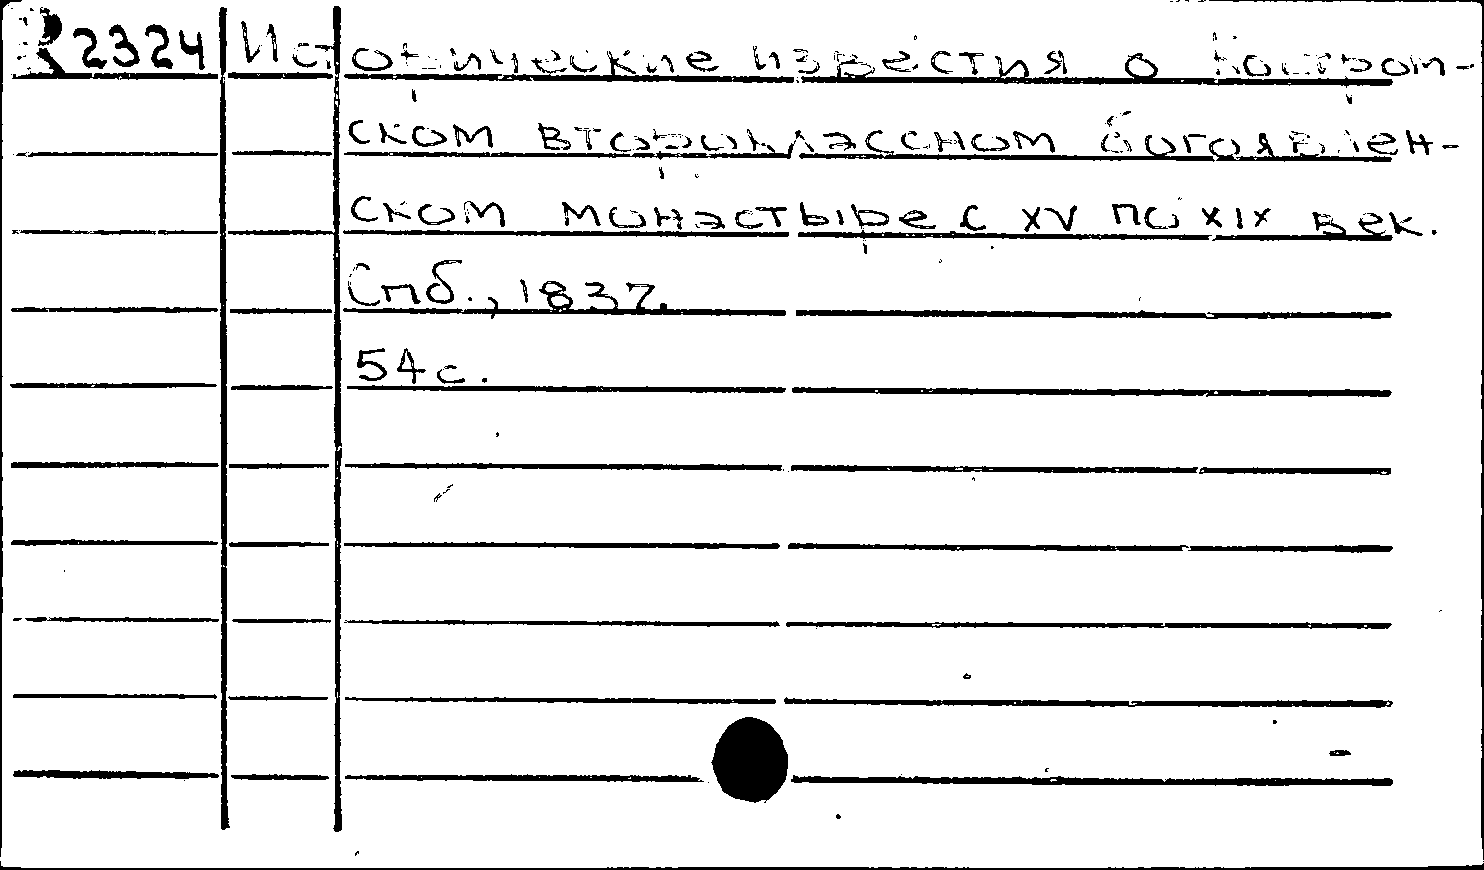 R2324 Исторические известия о Костром-
ском второклассном Богоявлен-
ском монастыре с XV по XIX век.
Спб., 1837.
54 с.